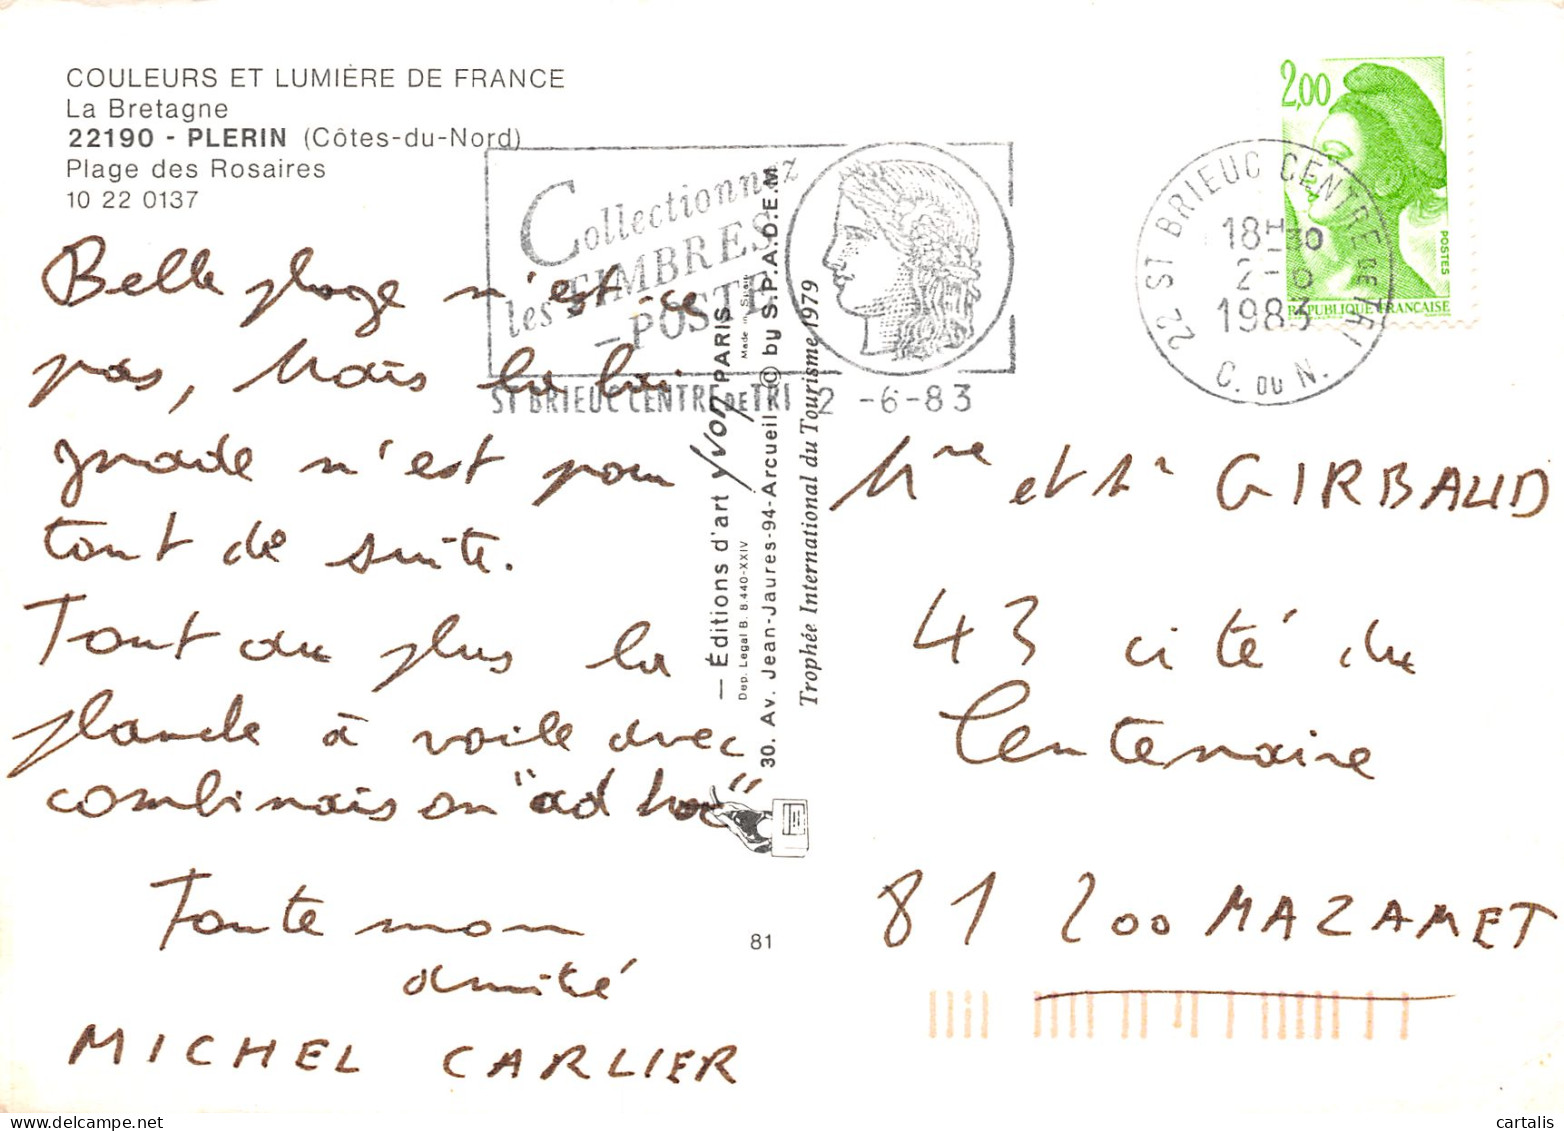 COULEURS ET LUMIÈRE DE FRANCE
La Bretagne
22190 - PLERIN (Côtes-du-Nord)
Plage des Rosaires
10 22 0137
Belle plage n'est-ce
pas, Mais la bai
gnade n'est pour
tout de suite.
Tout au plus la
planche à voile avec
combinaison "ad hoc"
Toute mon
amitié
MICHEL CARLIER
Collectionnez
les TIMBRES
-POSTE
ST BRIEUC CENTRE DE TRI 2 -6-83
— Éditions d'art Yvon PARIS
Made in
Dep. Legal B. B.440-XXIV
30. Av. Jean-Jaures-94-Arcueil © by S.P.A.D.E.M.
Trophée International du Tourisme 1979
81
2,00
POSTES
REPUBLIQUE FRANÇAISE
22 ST BRIEUC CENTRE DE TRI
18H30
2-6
1983
C. DU N.
Mme et Mr GIRBAUD
43 cité du
Centenaire
81 200 MAZAMET
delcampe.net
cartalis